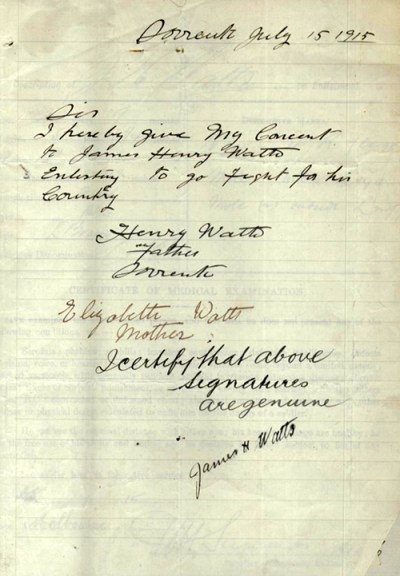 Sorrento July 15 1915
Sir
I hereby give My Concent
to James Henry Watts
Enlisting to go Fight for his
Country
Henry Watts
Father
Sorrento
Elizabeth Watts
Mother
I certify that above
signatures
are genuine
James H Watts
CERTIFICATE OF MEDICAL EXAMINATION